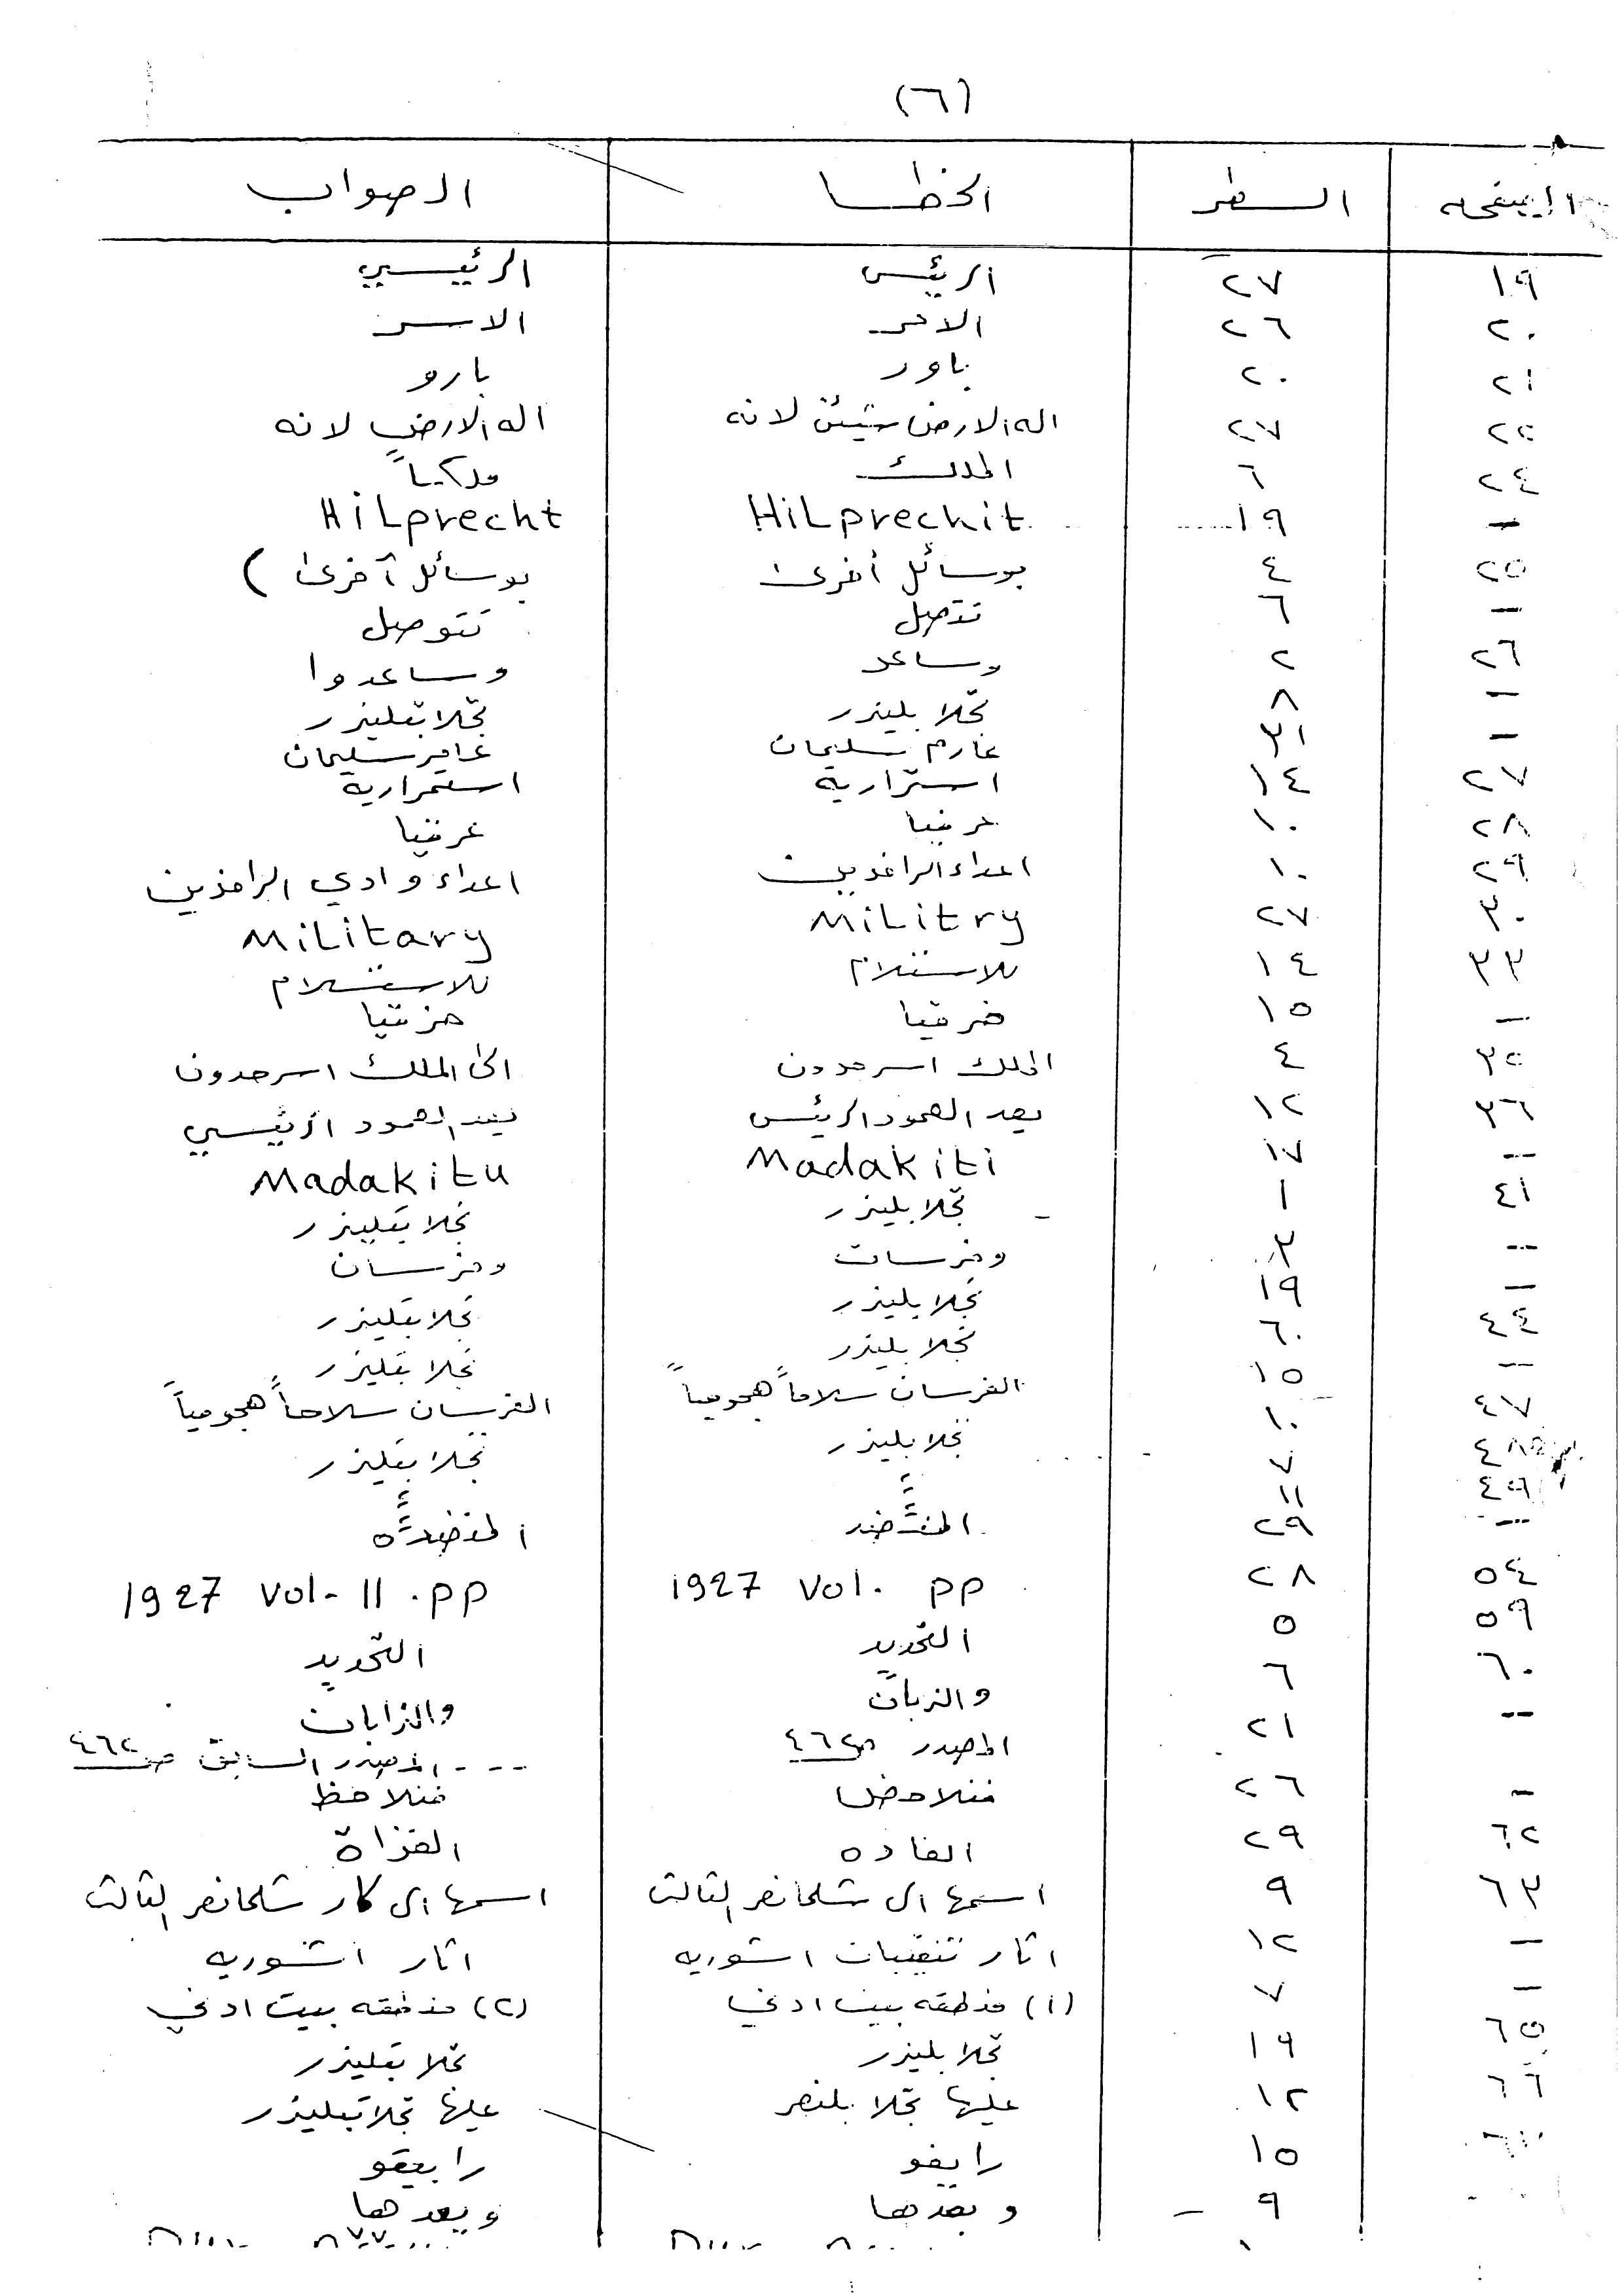 (٦)
الصفحه السطر الخطأ الصواب
١٩ ٢٧ الرئيس الرئيسي
٢٠ ٢٦ الاحر الاسر
٢١ ٢٠ باور بارو
٢٧ اله الارض شيئن لانه اله الارض لانه
٢٤ ٦ الملك ملكياً
— ١٩ Hilprechit Hilprecht
٢٥ ٤ بوسائل أخرى بوسائل آخرى )
— ٦ تتصل تتوصل
٢٦ ٢ وساعد وساعدوا
— ٨ تجلابليزر تجلاتبليزر
— ٣١ عارم سليمان عامر سليمان
٢٧ ١٤ استرارية استمرارية
٢٨ ١٠ عرضيا
٢٩ ١٠ اعداء الرافدين اعداء وادي الرافدين
٣٠ ٢٧ Militry Military
٣٣ ١٤ للاستلام للاستسلام
— ١٥ خرقيا حزقيا
٣٥ ٤ الملك اسرحدون الى الملك اسرحدون
٣٦ ١٢ بعد العمود الرئيس بعد العمود الرئيسي
— ١٧ Madakiti Madakitu
٤١ ١ تجلابليزر تجلاتبليزر
— ٣ وفرسات وفرسان
— ١٩ تجلابليزر تجلاتبليزر
٤٤ ٦٠ تجلابليزر تجلاتبليزر
— ١٥ الفرسان سلاماً هجومياً الفرسان سلاحاً هجومياً
٤٧ ١٠ تجلابليزر تجلاتبليزر
٤٨ ٧ ً ً
٤٩ ١١
— ٢٩ المنضد المنضدة
٥٤ ٢٨ 1927 Vol. pp 1927 Vol- II . pp
٥٩ ٥ التحديد
٦٠ ٦ والزبان والزابان
— ٢١ المصدر ص٤٦٢ ---- المصدر السابق ص٤٦٢
— ٢٦ فنلاحض فنلاحظ
٦٢ ٢٩ الغاده الغزاة
٦٣ ٩ اسمها الى شلمانصر الثالث اسمها الى كار شلمانصر الثالث
— ١٢ اثار تنقيبات اشوريه اثار اشوريه
— ٧ (١) منطقه بيت ادني (٢) منطقه بيت ادني
٦٥ ١٩ تجلابليزر تجلاتبليزر
٦٦ ١٢ عليها تجلابلنصر عليها تجلاتبليزر
١٥ رايفو رابيقو
٩ وبعدها وبعدها